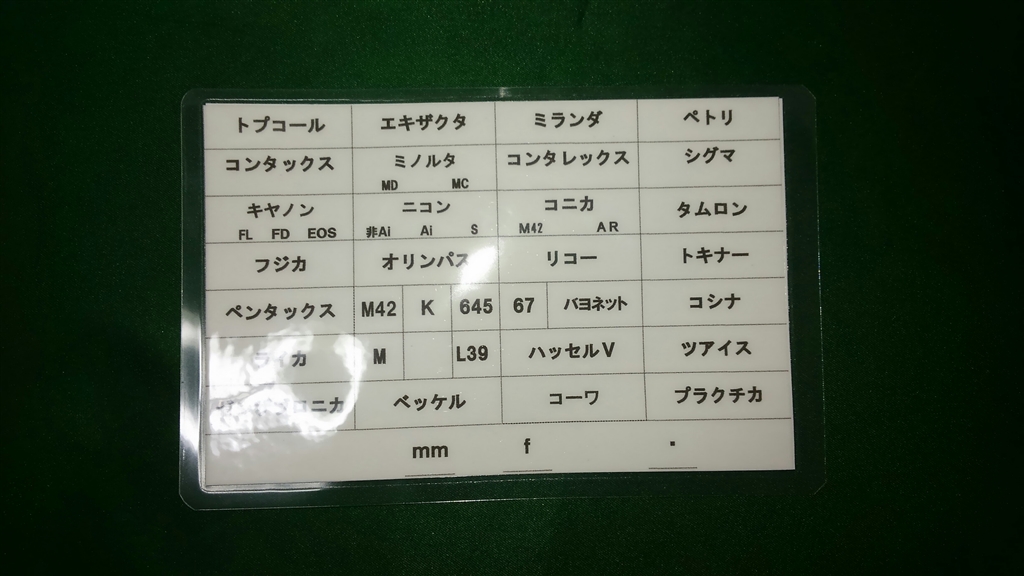 トプコール エキザクタ ミランダ ペトリ
コンタックス ミノルタ コンタレックス シグマ
MD MC
キヤノン ニコン コニカ タムロン
FL FD EOS 非Ai Ai S M42 AR
フジカ オリンパス リコー トキナー
ペンタックス M42 K 645 67 バヨネット コシナ
ライカ M L39 ハッセルV ツアイス
コニカ ベッケル コーワ プラクチカ
mm f .